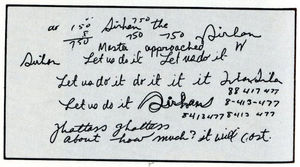 or 150 Sirhan 750 the Sirhan
8
750 750 750
Master approached W
Sirhan Let us do it Let us do it
Let us do it do it it it
88 417 477
Let us do it Sirhans 8-413-477
8413477 8413 477
about how much? it will cost.